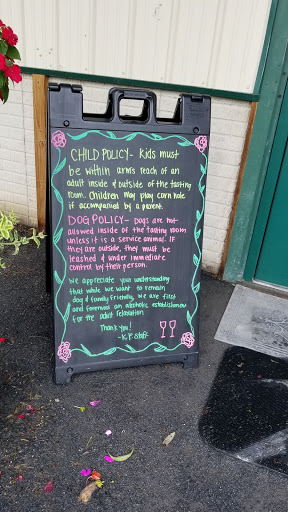 CHILD POLICY- Kids must
be within arms reach of an
adult inside & outside of the tasting
room. Children may play corn hole
if accompanied by a parent.
DOG POLICY- Dogs are not
allowed inside of the tasting room
unless it is a service animal. If
they are outside, they must be
leashed & under immediate
control by their person.
We appreciate your understanding
that while we want to remain
dog & family friendly, we are first
and foremost an alcoholic establishment
for the adult relaxation.
Thank you!
-K.P. Staff